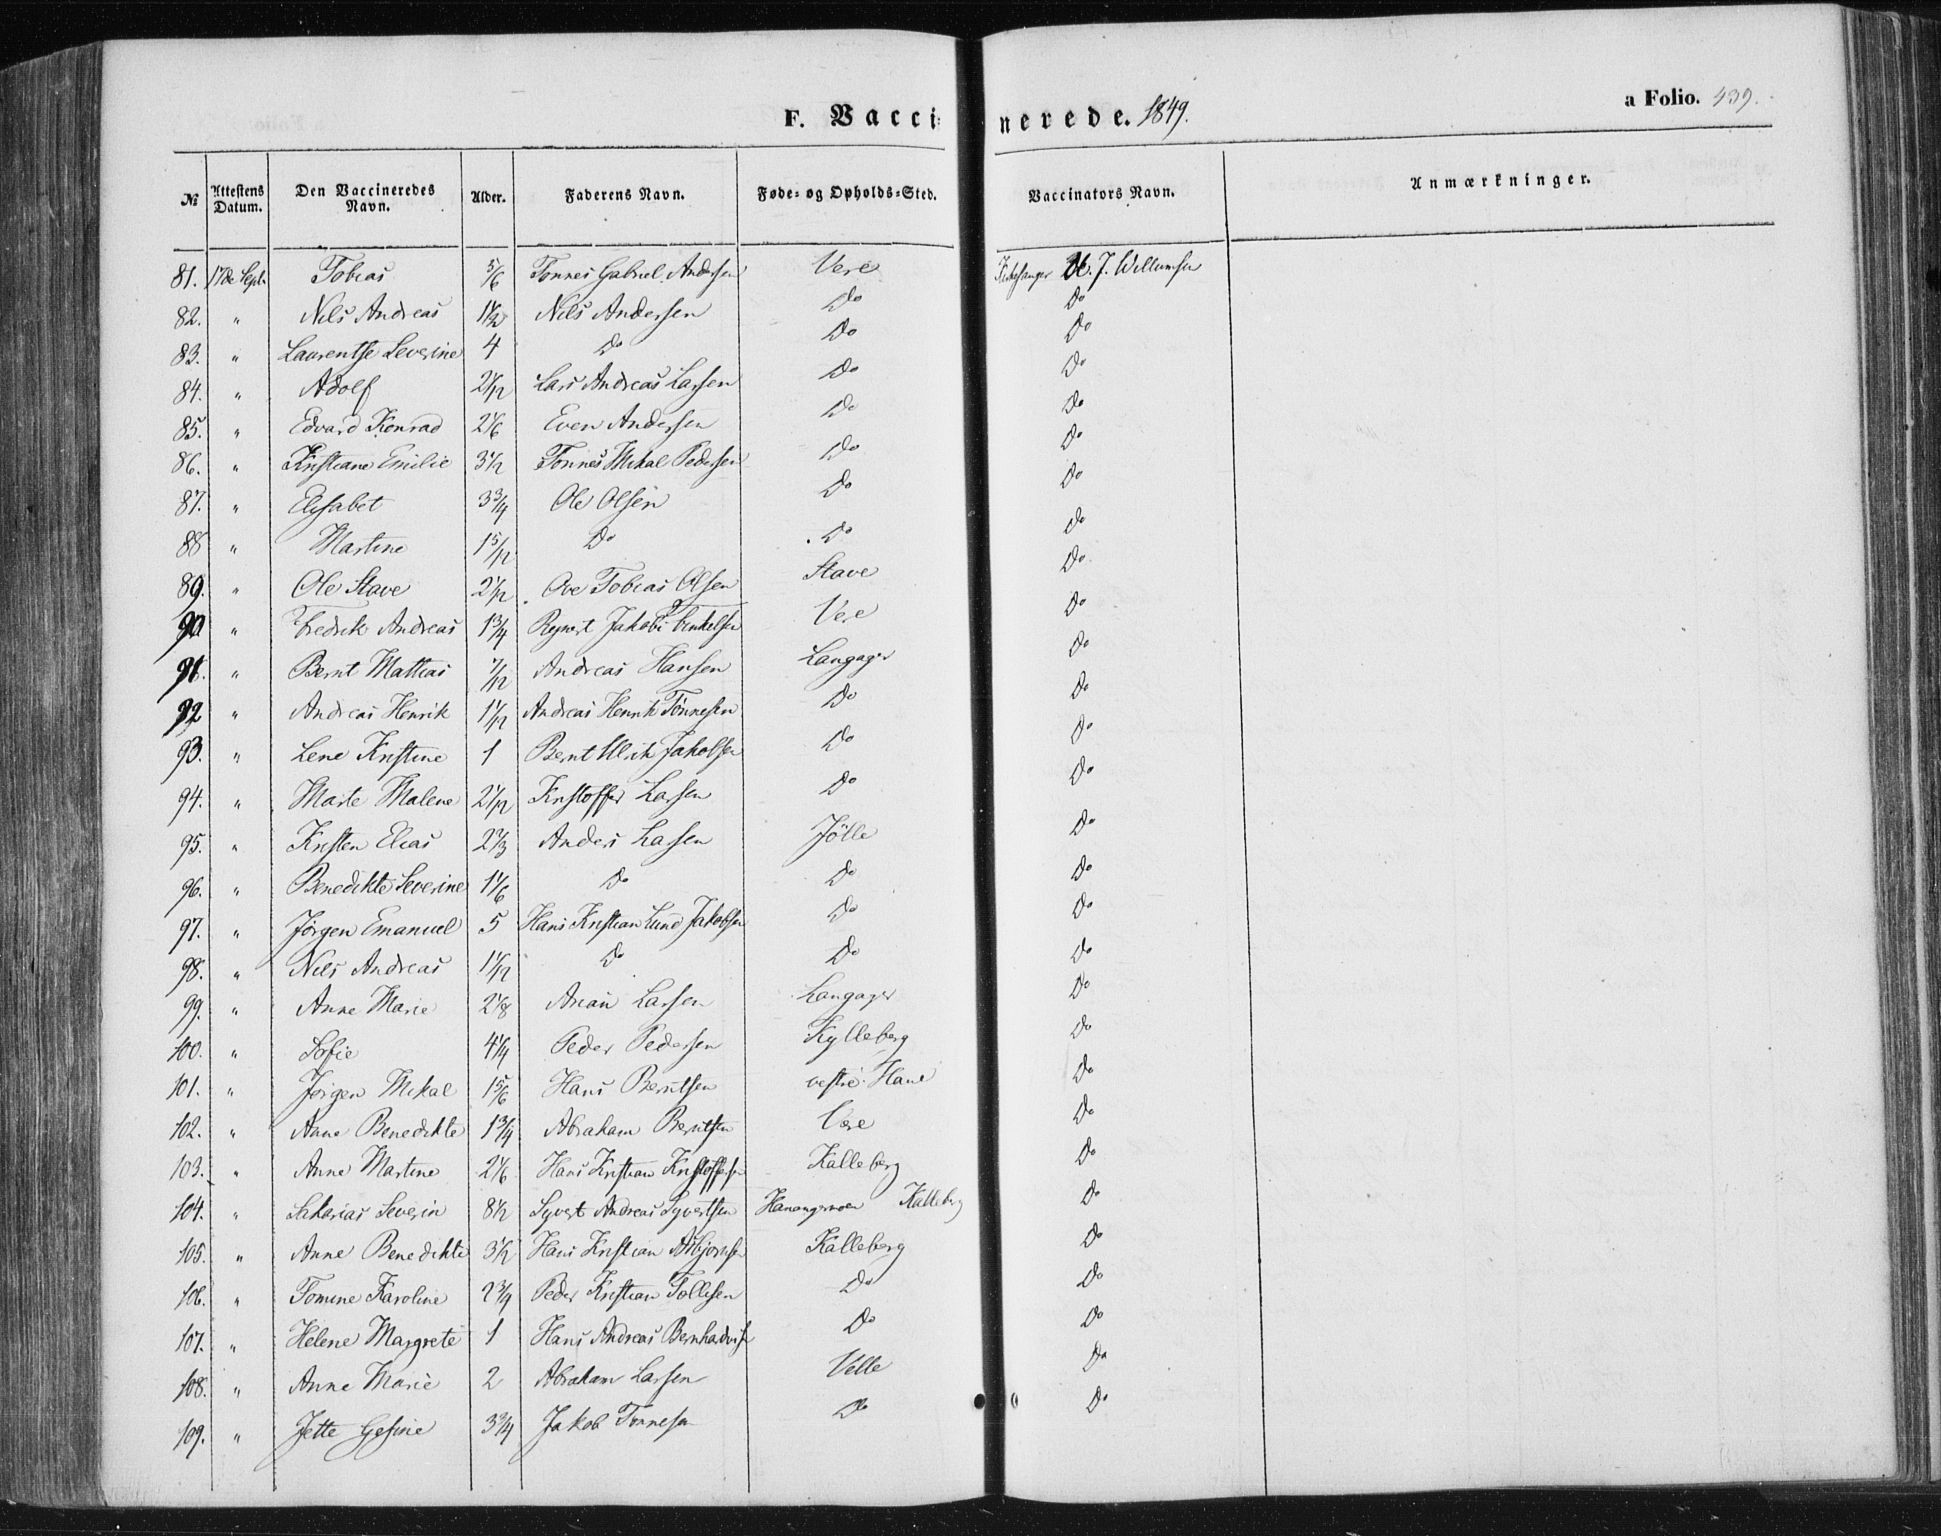 F. Vaccinerede. 1849. a Folio. 439.
№ Attestens Datum. Den Vaccineredes Navn. Alder. Faderens Navn. Føde- og Opholds-Sted. Vaccinators Navn. Anmærkninger.
81. 17de Sept. Tobias 5/6 Tønnes Gabriel Andersen Vere Kirkesanger J. Willumsen
82. " Nils Andreas 1 1/2 Nils Andersen Do Do
83. " Laurentse Severine 4 Do Do Do
84. " Adolf 2 1/12 Lars Andreas Larsen Do Do
85. " Edvard Konrad 2 1/6 Even Andersen Do Do
86. " Kristiane Emilie 3 1/2 Tønnes Mikal Pedersen Do Do
87. " Elisabet 3 3/4 Ole Olsen Do Do
88 " Martine 1 5/12 Do Do Do
89. " Ole Stave 2 1/12 Ove Tobias Olsen Stave Do
90 " Fredrik Andreas 1 3/4 Reinert Jakob Vere Do
91. " Bernt Mattias 7/12 Andreas Hansen Langager Do
92 " Andreas Henrik 1 1/12 Andreas Henrik Tönnesen Do Do
93. " Lene Kristine 1 Bernt Ulrik Jakobsen Do Do
94. " Marte Malene 2 1/12 Kristoffer Larsen Do Do
95. " Kristen Elias 2 2/3 Anders Larsen Jölle Do
96. " Benedikte Severine 1 1/6 Do Do Do
97. " Jörgen Emanuel 5 Hans Kristian Lund Jakobsen Do Do
98. " Nils Andreas 1 1/12 Do Do Do
99. " Anne Marie 2 1/8 Larsen Langager Do
100. " Sofie 4 1/4 Peder Pedersen Kylleberg Do
101. " Jörgen Mikal 1 5/6 Hans Berntsen vestre Hane Do
102. " Anne Benedikte 1 3/4 Abraham Berntsen Vere Do
103. " Anne Martine 2 1/6 Hans Kristian Kristoffersen Kalleberg Do
104. " Sakarias Severin 8 1/2 Syvert Andreas Syvertsen Hanangermoen Kalleberg Do
105. " Anne Benedikte 3 1/2 Hans Kristian Asbjørnsen Kalleberg Do
106. " Tomine Karoline 2 3/4 Peder Kristian Tollisen Do Do
107. " Helene Margrete 1 Hans Andreas Bernhardsen Do Do
108. " Anne Marie 2 Abraham Larsen Velle Do
109. " Jette Gesine 3 3/4 Jakob Tønnesen Do Do